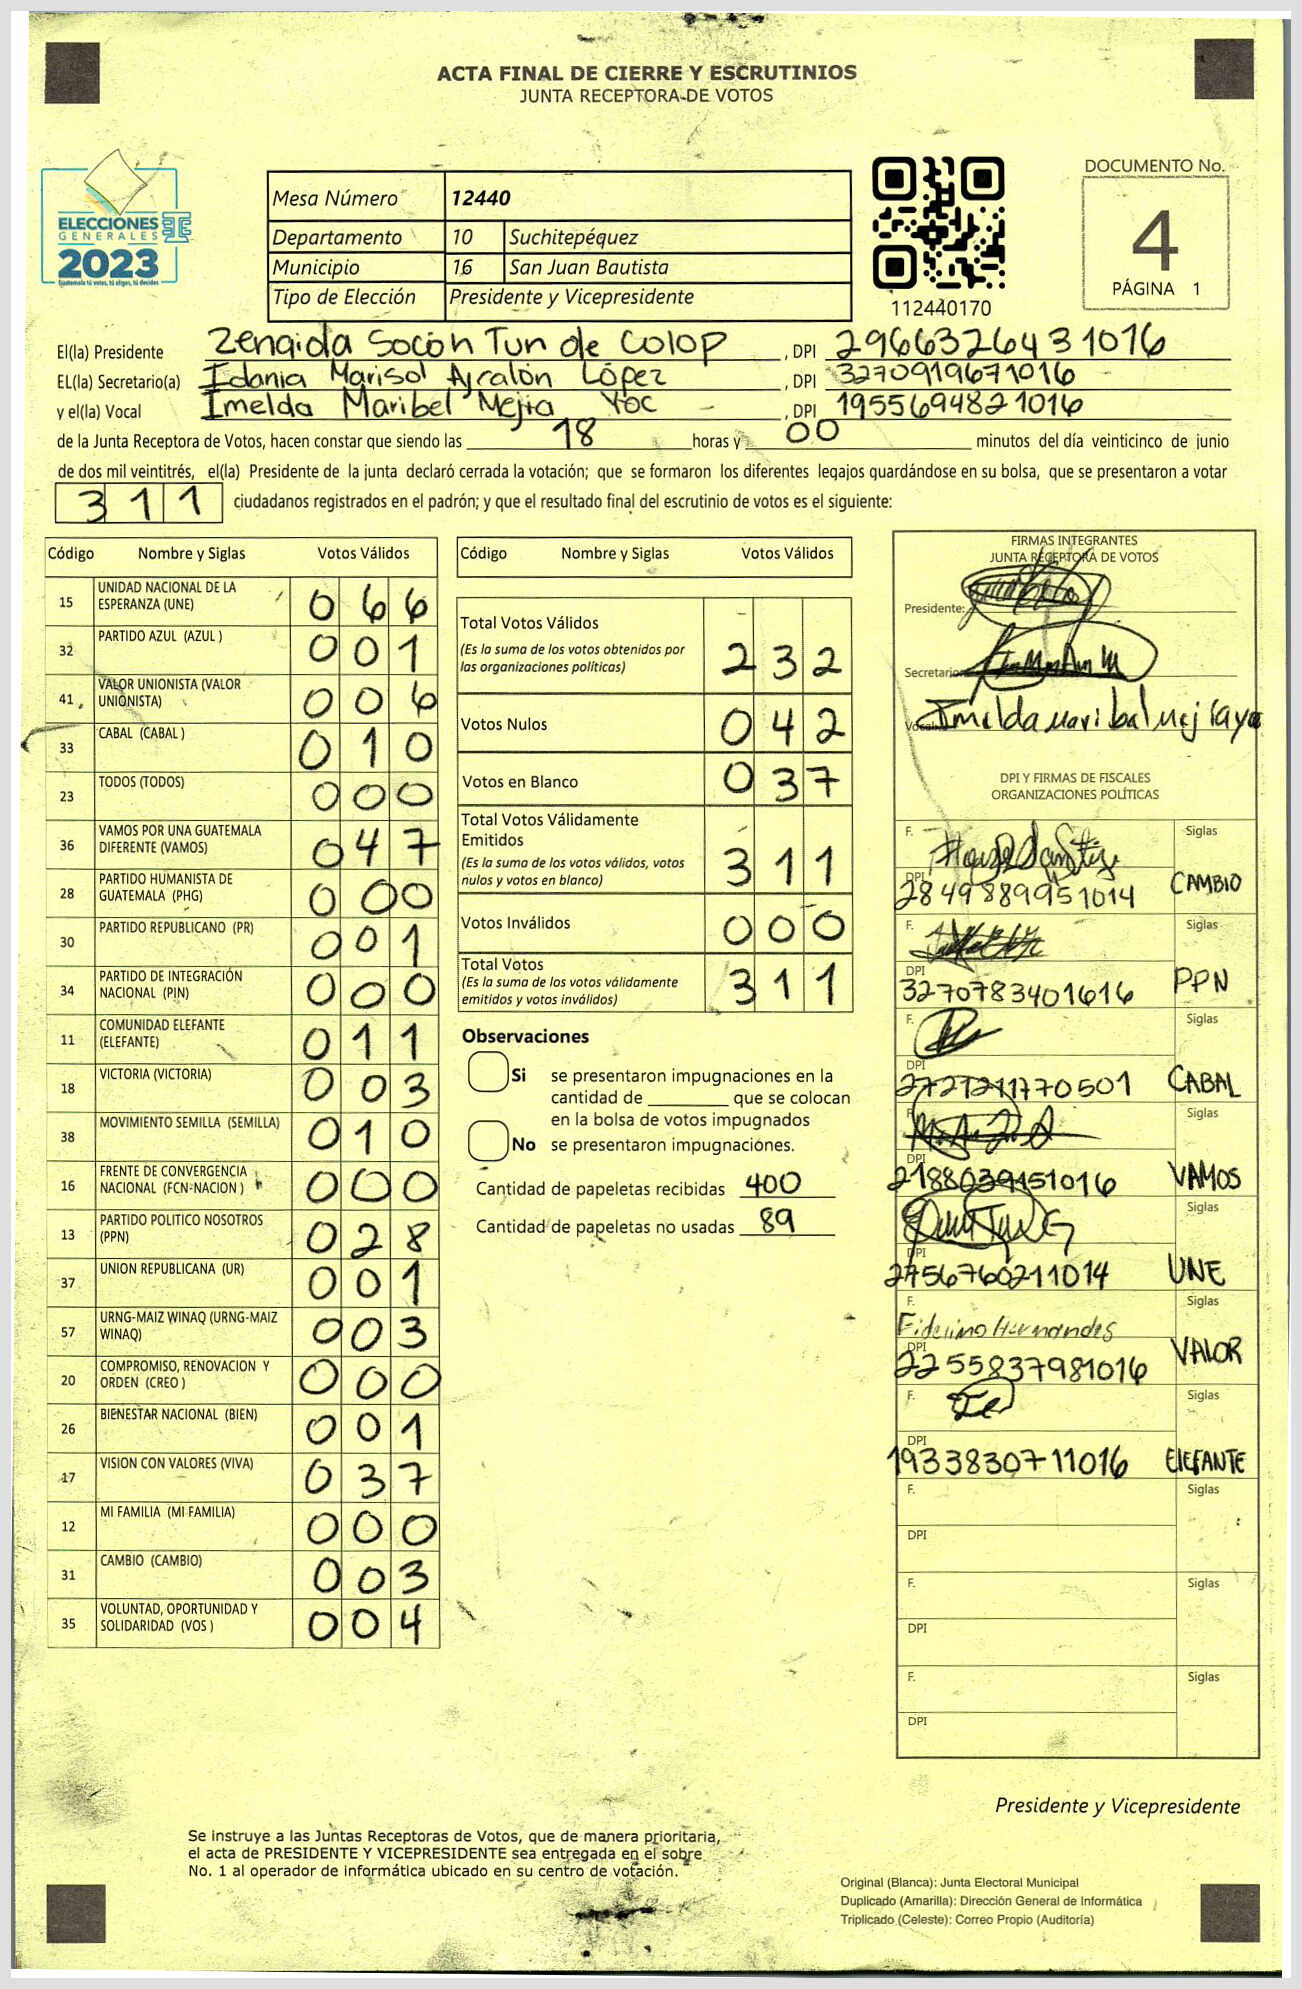 ACTA FINAL DE CIERRE Y ESCRUTINIOS
JUNTA RECEPTORA DE VOTOS
ELECCIONES
GENERALES
2023
Guatemala tú votas, tú eliges, tú decides
Mesa Número 12440
Departamento 10 Suchitepéquez
Municipio 16 San Juan Bautista
Tipo de Elección Presidente y Vicepresidente
112440170
DOCUMENTO No.
4
PÁGINA 1
El(la) Presidente Zenaida Socón Tun de Colop, DPI 2966326431016
EL(la) Secretario(a) Idania Marisol Ajcalón López, DPI 3270919671016
y el(la) Vocal Imelda Maribel Mejia Yoc, DPI 1955694821016
de la Junta Receptora de Votos, hacen constar que siendo las 18 horas y 00 minutos del día veinticinco de junio
de dos mil veintitrés, el(la) Presidente de la junta declaró cerrada la votación; que se formaron los diferentes legajos guardándose en su bolsa, que se presentaron a votar
311 ciudadanos registrados en el padrón; y que el resultado final del escrutinio de votos es el siguiente:
Código Nombre y Siglas Votos Válidos
15 UNIDAD NACIONAL DE LA ESPERANZA (UNE) 066
32 PARTIDO AZUL (AZUL ) 001
41 VALOR UNIONISTA (VALOR UNIONISTA) 006
33 CABAL (CABAL ) 010
23 TODOS (TODOS) 000
36 VAMOS POR UNA GUATEMALA DIFERENTE (VAMOS) 047
28 PARTIDO HUMANISTA DE GUATEMALA (PHG) 000
30 PARTIDO REPUBLICANO (PR) 001
34 PARTIDO DE INTEGRACIÓN NACIONAL (PIN) 000
11 COMUNIDAD ELEFANTE (ELEFANTE) 011
18 VICTORIA (VICTORIA) 003
38 MOVIMIENTO SEMILLA (SEMILLA) 010
16 FRENTE DE CONVERGENCIA NACIONAL (FCN-NACION ) 000
13 PARTIDO POLITICO NOSOTROS (PPN) 028
37 UNION REPUBLICANA (UR) 001
57 URNG-MAIZ WINAQ (URNG-MAIZ WINAQ) 003
20 COMPROMISO, RENOVACION Y ORDEN (CREO ) 000
26 BIENESTAR NACIONAL (BIEN) 001
17 VISION CON VALORES (VIVA) 037
12 MI FAMILIA (MI FAMILIA) 000
31 CAMBIO (CAMBIO) 003
35 VOLUNTAD, OPORTUNIDAD Y SOLIDARIDAD (VOS ) 004
Código Nombre y Siglas Votos Válidos
Total Votos Válidos 232
(Es la suma de los votos obtenidos por
las organizaciones políticas)
Votos Nulos 042
Votos en Blanco 037
Total Votos Válidamente
Emitidos 311
(Es la suma de los votos válidos, votos
nulos y votos en blanco)
Votos Inválidos 000
Total Votos 311
(Es la suma de los votos válidamente
emitidos y votos inválidos)
Observaciones
Si se presentaron impugnaciones en la
cantidad de ________ que se colocan
en la bolsa de votos impugnados
No se presentaron impugnaciones.
Cantidad de papeletas recibidas 400
Cantidad de papeletas no usadas 89
FIRMAS INTEGRANTES
JUNTA RECEPTORA DE VOTOS
Presidente:
Secretario
Imelda maribal mejiayo
DPI Y FIRMAS DE FISCALES
ORGANIZACIONES POLÍTICAS
F. Siglas
DPI 2849889951014 CAMBIO
F. Siglas
DPI 3270783401616 PPN
F. Siglas
DPI 2721211770501 CABAL
F. Siglas
DPI 2188039151016 VAMOS
F. Siglas
DPI 2756760211014 UNE
F. Hernandes Siglas
DPI 2255837981016 VALOR
F. Siglas
DPI 1933830711016 ELEFANTE
F. Siglas
DPI
F. Siglas
DPI
F. Siglas
DPI
Presidente y Vicepresidente
Se instruye a las Juntas Receptoras de Votos, que de manera prioritaria,
el acta de PRESIDENTE Y VICEPRESIDENTE sea entregada en el sobre
No. 1 al operador de informática ubicado en su centro de votación.
Original (Blanca): Junta Electoral Municipal
Duplicado (Amarilla): Dirección General de Informática
Triplicado (Celeste): Correo Propio (Auditoría)